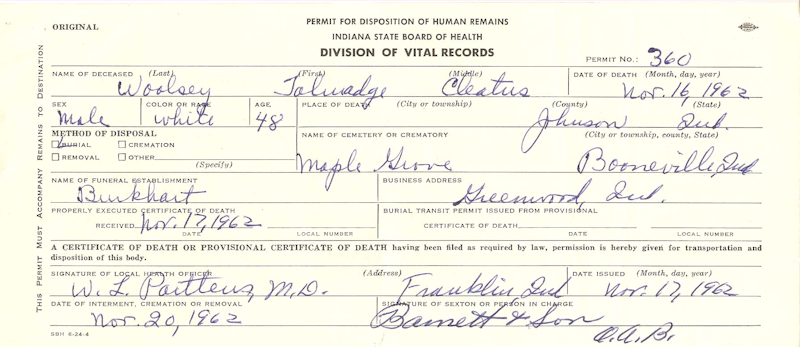 ORIGINAL
PERMIT FOR DISPOSITION OF HUMAN REMAINS
INDIANA STATE BOARD OF HEALTH
DIVISION OF VITAL RECORDS
PERMIT NO.: 360
NAME OF DECEASED (Last) (First) (Middle) DATE OF DEATH (Month, day, year)
Woolsey Talmadge Cleatus Nov. 16, 1962
SEX COLOR OR RACE AGE PLACE OF DEATH (City or township) (County) (State)
Male White 48 Johnson Ind.
METHOD OF DISPOSAL NAME OF CEMETERY OR CREMATORY (City or township, county, State)
BURIAL CREMATION
REMOVAL OTHER
(Specify)
Maple Grove Booneville, Ind
NAME OF FUNERAL ESTABLISHMENT BUSINESS ADDRESS
Burkhart Greenwood, Ind.
PROPERLY EXECUTED CERTIFICATE OF DEATH BURIAL TRANSIT PERMIT ISSUED FROM PROVISIONAL
RECEIVED Nov. 17, 1962 CERTIFICATE OF DEATH
DATE LOCAL NUMBER DATE LOCAL NUMBER
A CERTIFICATE OF DEATH OR PROVISIONAL CERTIFICATE OF DEATH having been filed as required by law, permission is hereby given for transportation and
disposition of this body.
SIGNATURE OF LOCAL HEALTH OFFICER (Address) DATE ISSUED (Month, day, year)
W. L. M.D. Franklin Ind Nov. 17, 1962
DATE OF INTERMENT, CREMATION OR REMOVAL SIGNATURE OF SEXTON OR PERSON IN CHARGE
Nov. 20, 1962 Barnett & Son
O.A.B.
SBH 6-24-4
THIS PERMIT MUST ACCOMPANY REMAINS TO DESTINATION